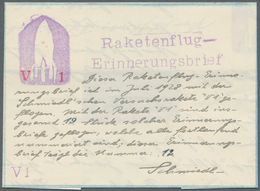 Raketenflug-
Erinnerungsbrief
V 1
Diese Raketenflug-Erinne-
rungsbrief ist im Juli 1928 mit der
Schmiedl'schen Versuchsrakete "V1" ge-
flogen. Mit der Rakete "V1" sind ins-
gesamt 19 Stück solcher Erinnerungs-
briefe geflogen, welche alle fortlaufend
nummeriert sind, dieser Erinnerungs-
brief trägt die Nummer: 12
Schmiedl
V1